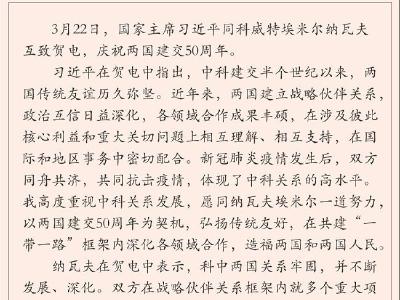 3月22日，国家主席习近平同科威特埃米尔纳瓦夫
互致贺电，庆祝两国建交50周年。
习近平在贺电中指出，中科建交半个世纪以来，两
国传统友谊历久弥坚。近年来，两国建立战略伙伴关系，
政治互信日益深化，各领域合作成果丰硕，在涉及彼此
核心利益和重大关切问题上相互理解、相互支持，在国
际和地区事务中密切配合。新冠肺炎疫情发生后，双方
同舟共济，共同抗击疫情，体现了中科关系的高水平。
我高度重视中科关系发展，愿同纳瓦夫埃米尔一道努力，
以两国建交50周年为契机，弘扬传统友好，在共建“一
带一路”框架内深化各领域合作，造福两国和两国人民。
纳瓦夫在贺电中表示，科中两国关系牢固，并不断
发展、深化。双方在战略伙伴关系框架内就多个重大项